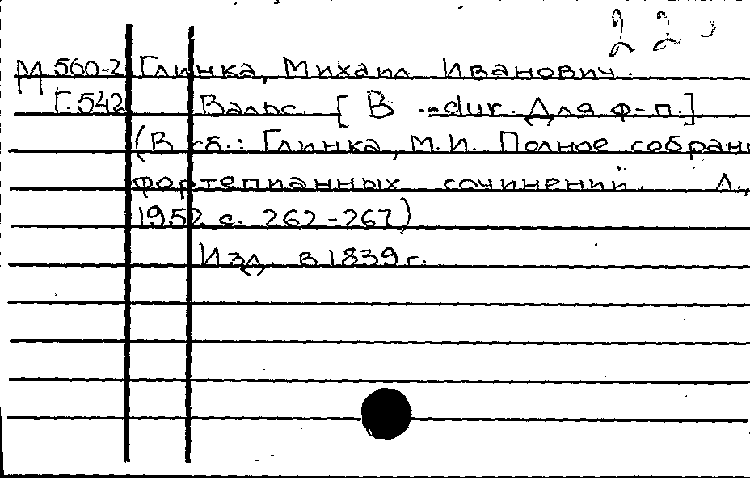 22
М 560-2 Глинка, Михаил Иванович.
Г.542 Вальс. [B-dur. Для ф-п.]
(В сб.: Глинка, М.И. Полное собрани
фортепианных сочинений. Л.,
1952 с. 262-267)
Изд. в 1839 г.